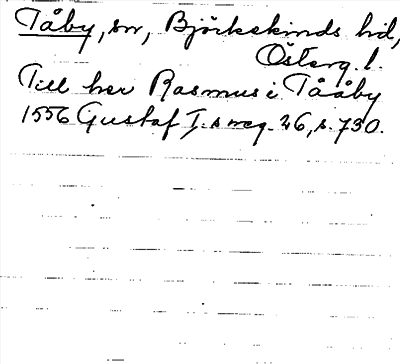 Tåby, sn, Björkekinds hd,
Österg. l.
Till her Rasmus i Tååby
1556 Gustaf I.s reg. 26, s. 730.